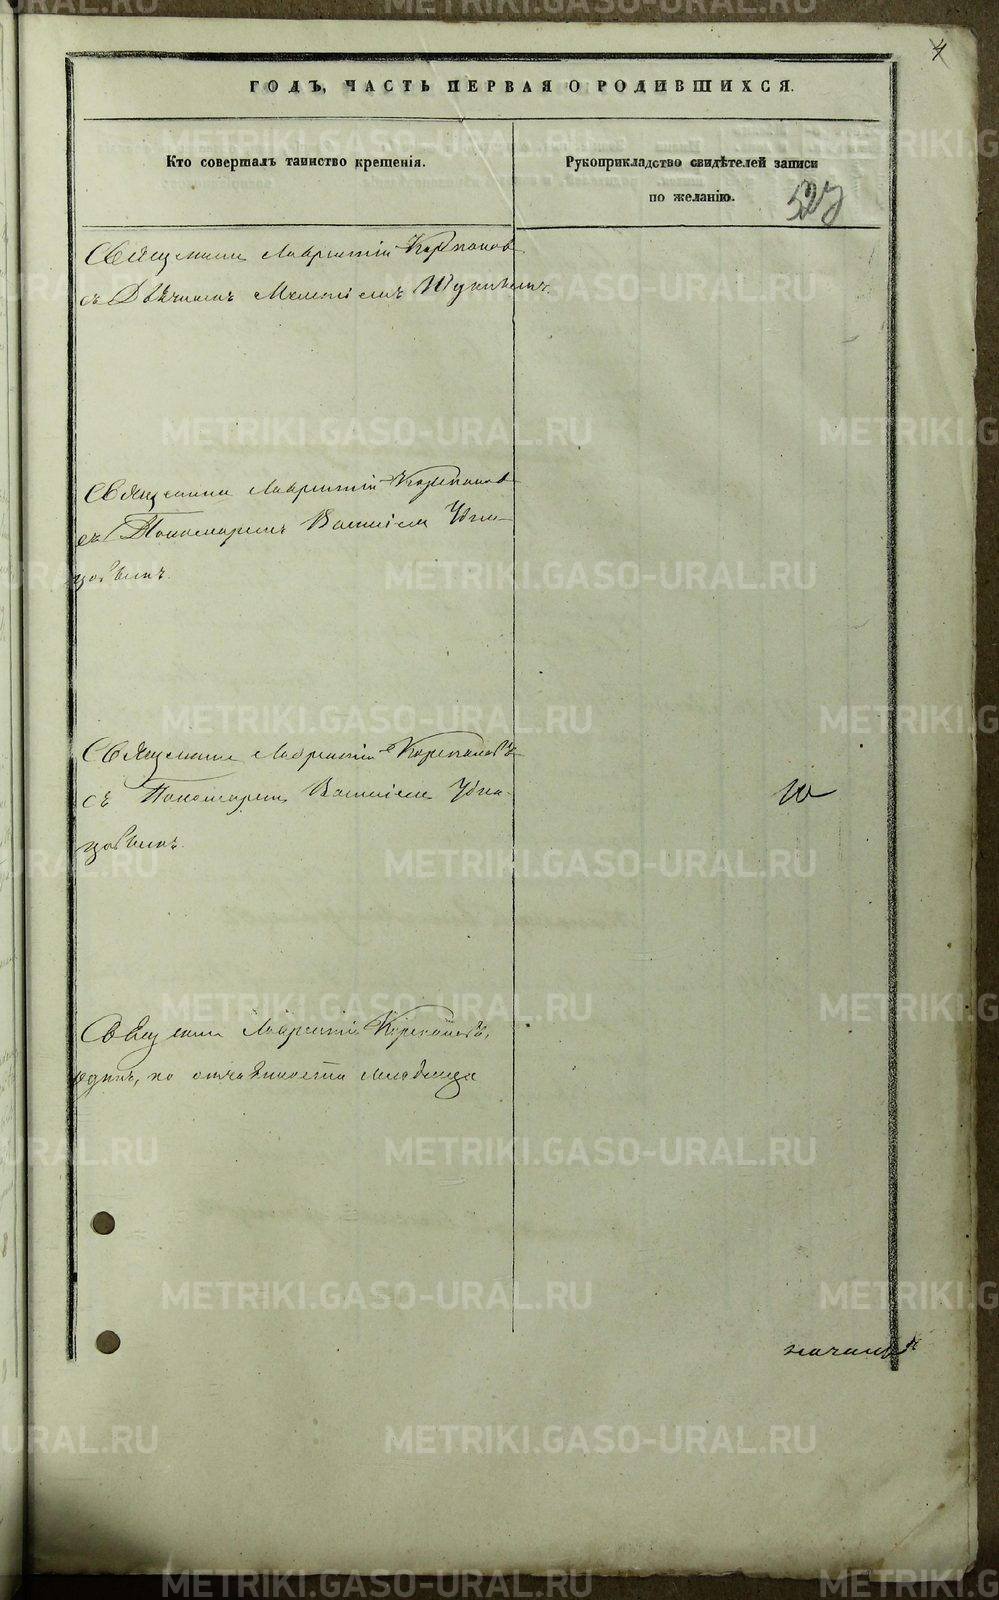 4
ГОДЪ, ЧАСТЬ ПЕРВАЯ О РОДИВШИХСЯ.
Кто совершалъ таинство крещенія.
Рукоприкладство свидѣтелей записи
по желанію.
527
Священник Лаврентій Корепанов
съ Дьячкомъ
Священник Лаврентій Корепанов
съ Пономаремъ Василіем Убиен-
цовымъ.
Священник Лаврентій Корепановъ
съ Пономарем Василіем
цовымъ.
Священник Лаврентій Корепановъ,
одинъ, по отчаянности младенца
METRIKI.GASO-URAL.RU